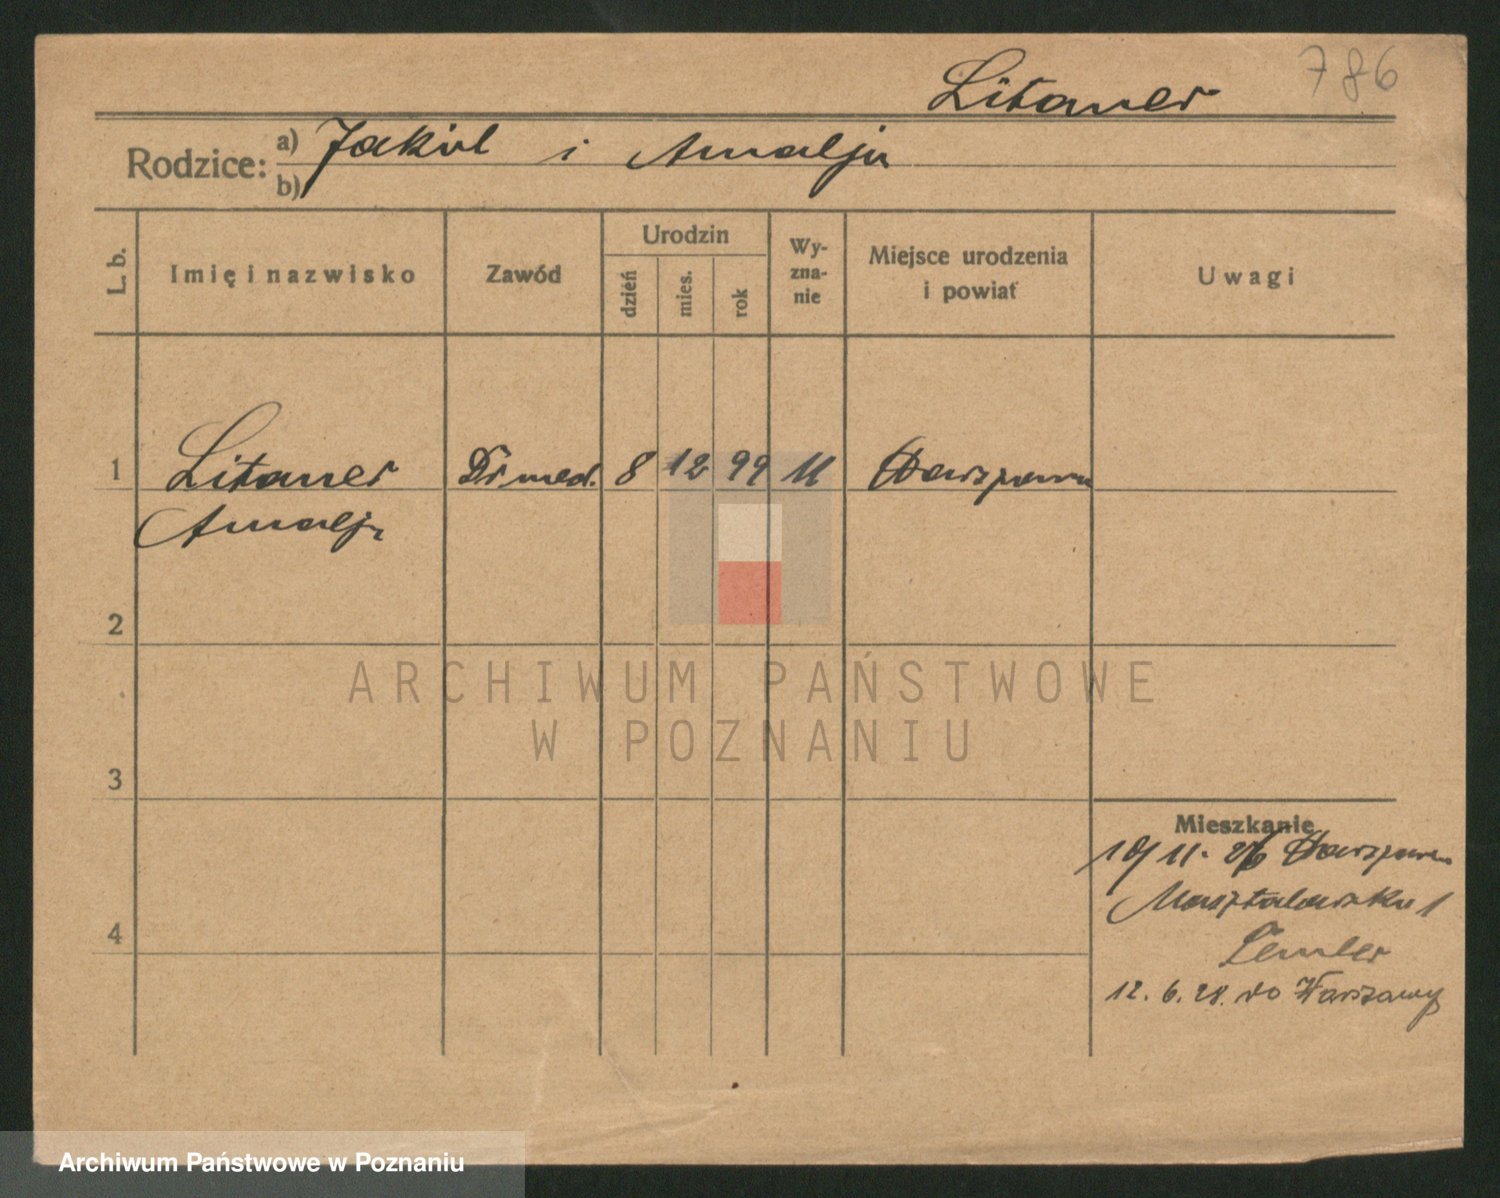 786
Litauer
Rodzice: a) Jakób i Amalja
b)
L. b. Imię i nazwisko Zawód Urodzin dzień mies. rok Wyznanie Miejsce urodzenia i powiat Uwagi
1 Litauer Dr med. 8 12 99 Warszawa
Amalja
2
3
4
Mieszkanie
19/11. 26 Warszawa
Masztalarska 1
12. 6. 28. do Warszawy
ARCHIWUM PAŃSTWOWE
W POZNANIU
Archiwum Państwowe w Poznaniu